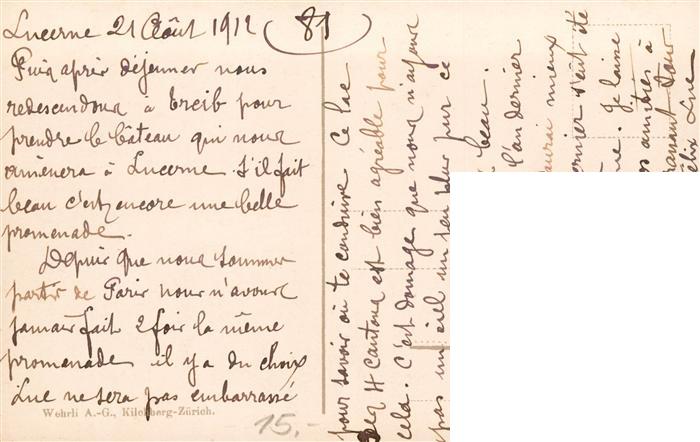 Lucerne 21 Août 1912 (81)
Puis après déjeuner nous
redescendons à Treib pour
prendre le bâteau qui nous
amènera à Lucerne. S'il fait
beau c'est encore une belle
promenade.
Depuis que nous sommes
partis de Paris nous n'avons
jamais fait 2 fois la même
promenade il y a du choix
Luc ne sera pas embarrassé
pour savoir où te conduire Ce lac
des 4 Cantons est bien agréable pour
cela. C'est domage que nous n'ayons
pas un ciel un peu plus pur ce
beau.
l'an dernier
aurai mieux
dernier s'eut été
Je laisse
amitiés à
Luc
Wehrli A.-G., Kilchberg-Zürich.
15.-